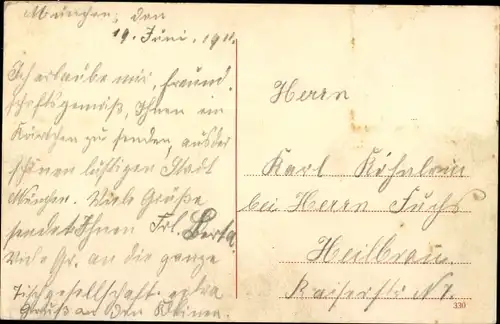 München, den
19. Juni. 1911.
Ich erlaube mir, freund-
schaftsgemäß, Ihnen ein
Kärtchen zu senden, aus der
schönen lustigen Stadt
München. Viele Grüße
sendet Ihnen Frl. Berta.
Viele Gr. an die ganze
Tischgesellschaft extra
Gruß an den Kleinen.
Herrn
Karl
bei Herrn Fuchs
Heilbronn.
Kaiserstr. N 7.
330